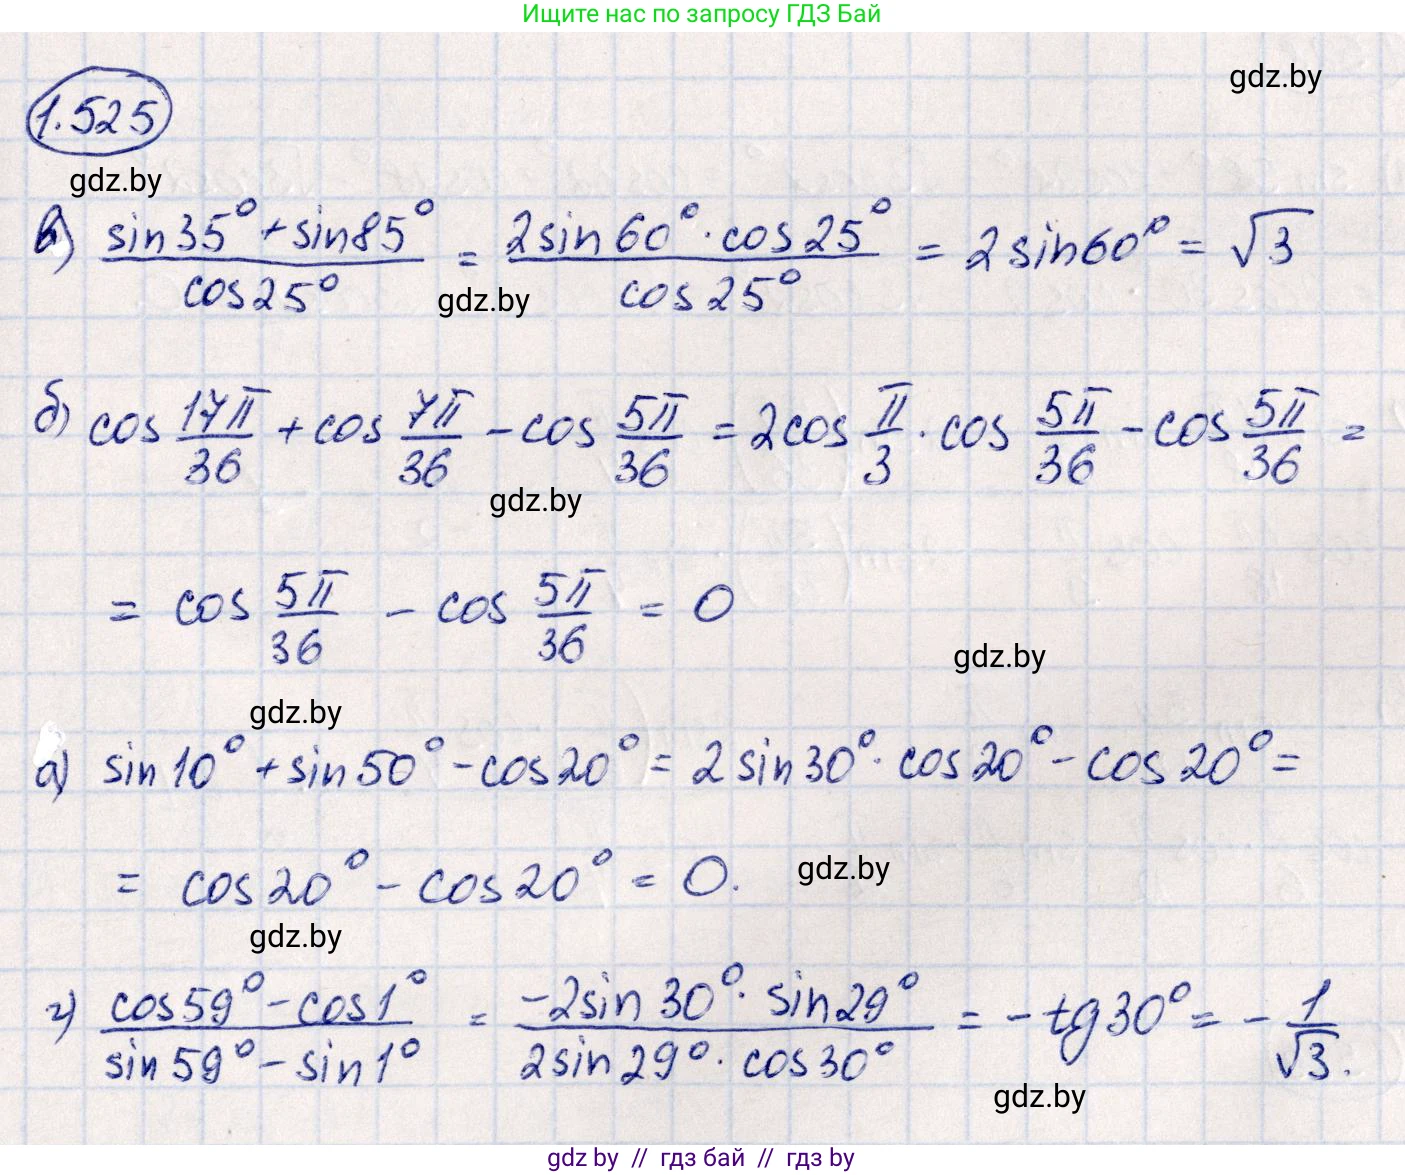 Ищите нас по запросу ГДЗ Бай
gdz.by
1.525
gdz.by
в) (sin35° + sin85°)/cos25° = (2sin60° · cos25°)/cos25° = 2sin60° = √3
gdz.by
б) cos 17π/36 + cos 7π/36 − cos 5π/36 = 2cos π/3 · cos 5π/36 − cos 5π/36 =
gdz.by
= cos 5π/36 − cos 5π/36 = 0
gdz.by
gdz.by
а) sin10° + sin50° − cos20° = 2sin30° · cos20° − cos20° =
= cos20° − cos20° = 0.
gdz.by
gdz.by
г) (cos59° − cos1°)/(sin59° − sin1°) = (−2sin30° · sin29°)/(2sin29° · cos30°) = −tg30° = −1/√3.
gdz.by
gdz by // гдз бай // гдз by